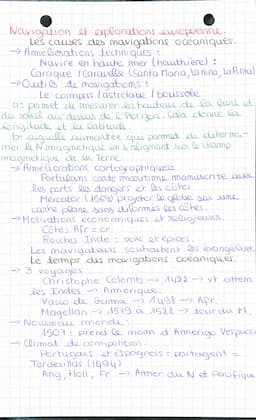 Navigation et explorations européenne.
Les causes des navigations océaniques.
→ Améliorations techniques :
Navire en haute mer (hauthière) :
Caraque / Caravelle (Santa Maria, la nina, la Pinta)
→ Outils de navigations :
Le compas / astrolabe / boussole
a : permet de mesurer la hauteur de la lune et
du soleil au dessus de l'horizon. Cela donne la
longitude et la latitude.
b : aiguille aimantée qui permet de détermi-
ner le N magnétique en s'alignant sur le champ
magnétique de la Terre.
→ Améliorations cartographiques :
Portulans carte maritime manuscrite avec
les ports les dangers et les côtes
Mercator (1569) projeter le globe sur une
carte plane sans déformés les côtes.
→ Motivations économiques et religieuses.
Côtes Afr = or
Routes Inde : soie et épices.
Les navigateurs souhaitent les évangéliser.
Le temps des navigations océaniques.
→ 3 voyages
Christophe Colomb → 1492 → vt attein
les Indes → Amérique.
Vasco de Gama → 1498 → Afr.
Magellan → 1519 à 1522 → tour du M.
→ Nouveau monde :
1507 : prend le nom d'Amerigo Vespucci
→ Climat de compétition.
Portugais et Espagnols = partagent =
Tordesillas (1494)
Ang, Holl, Fr → Amer du N et Pacifique